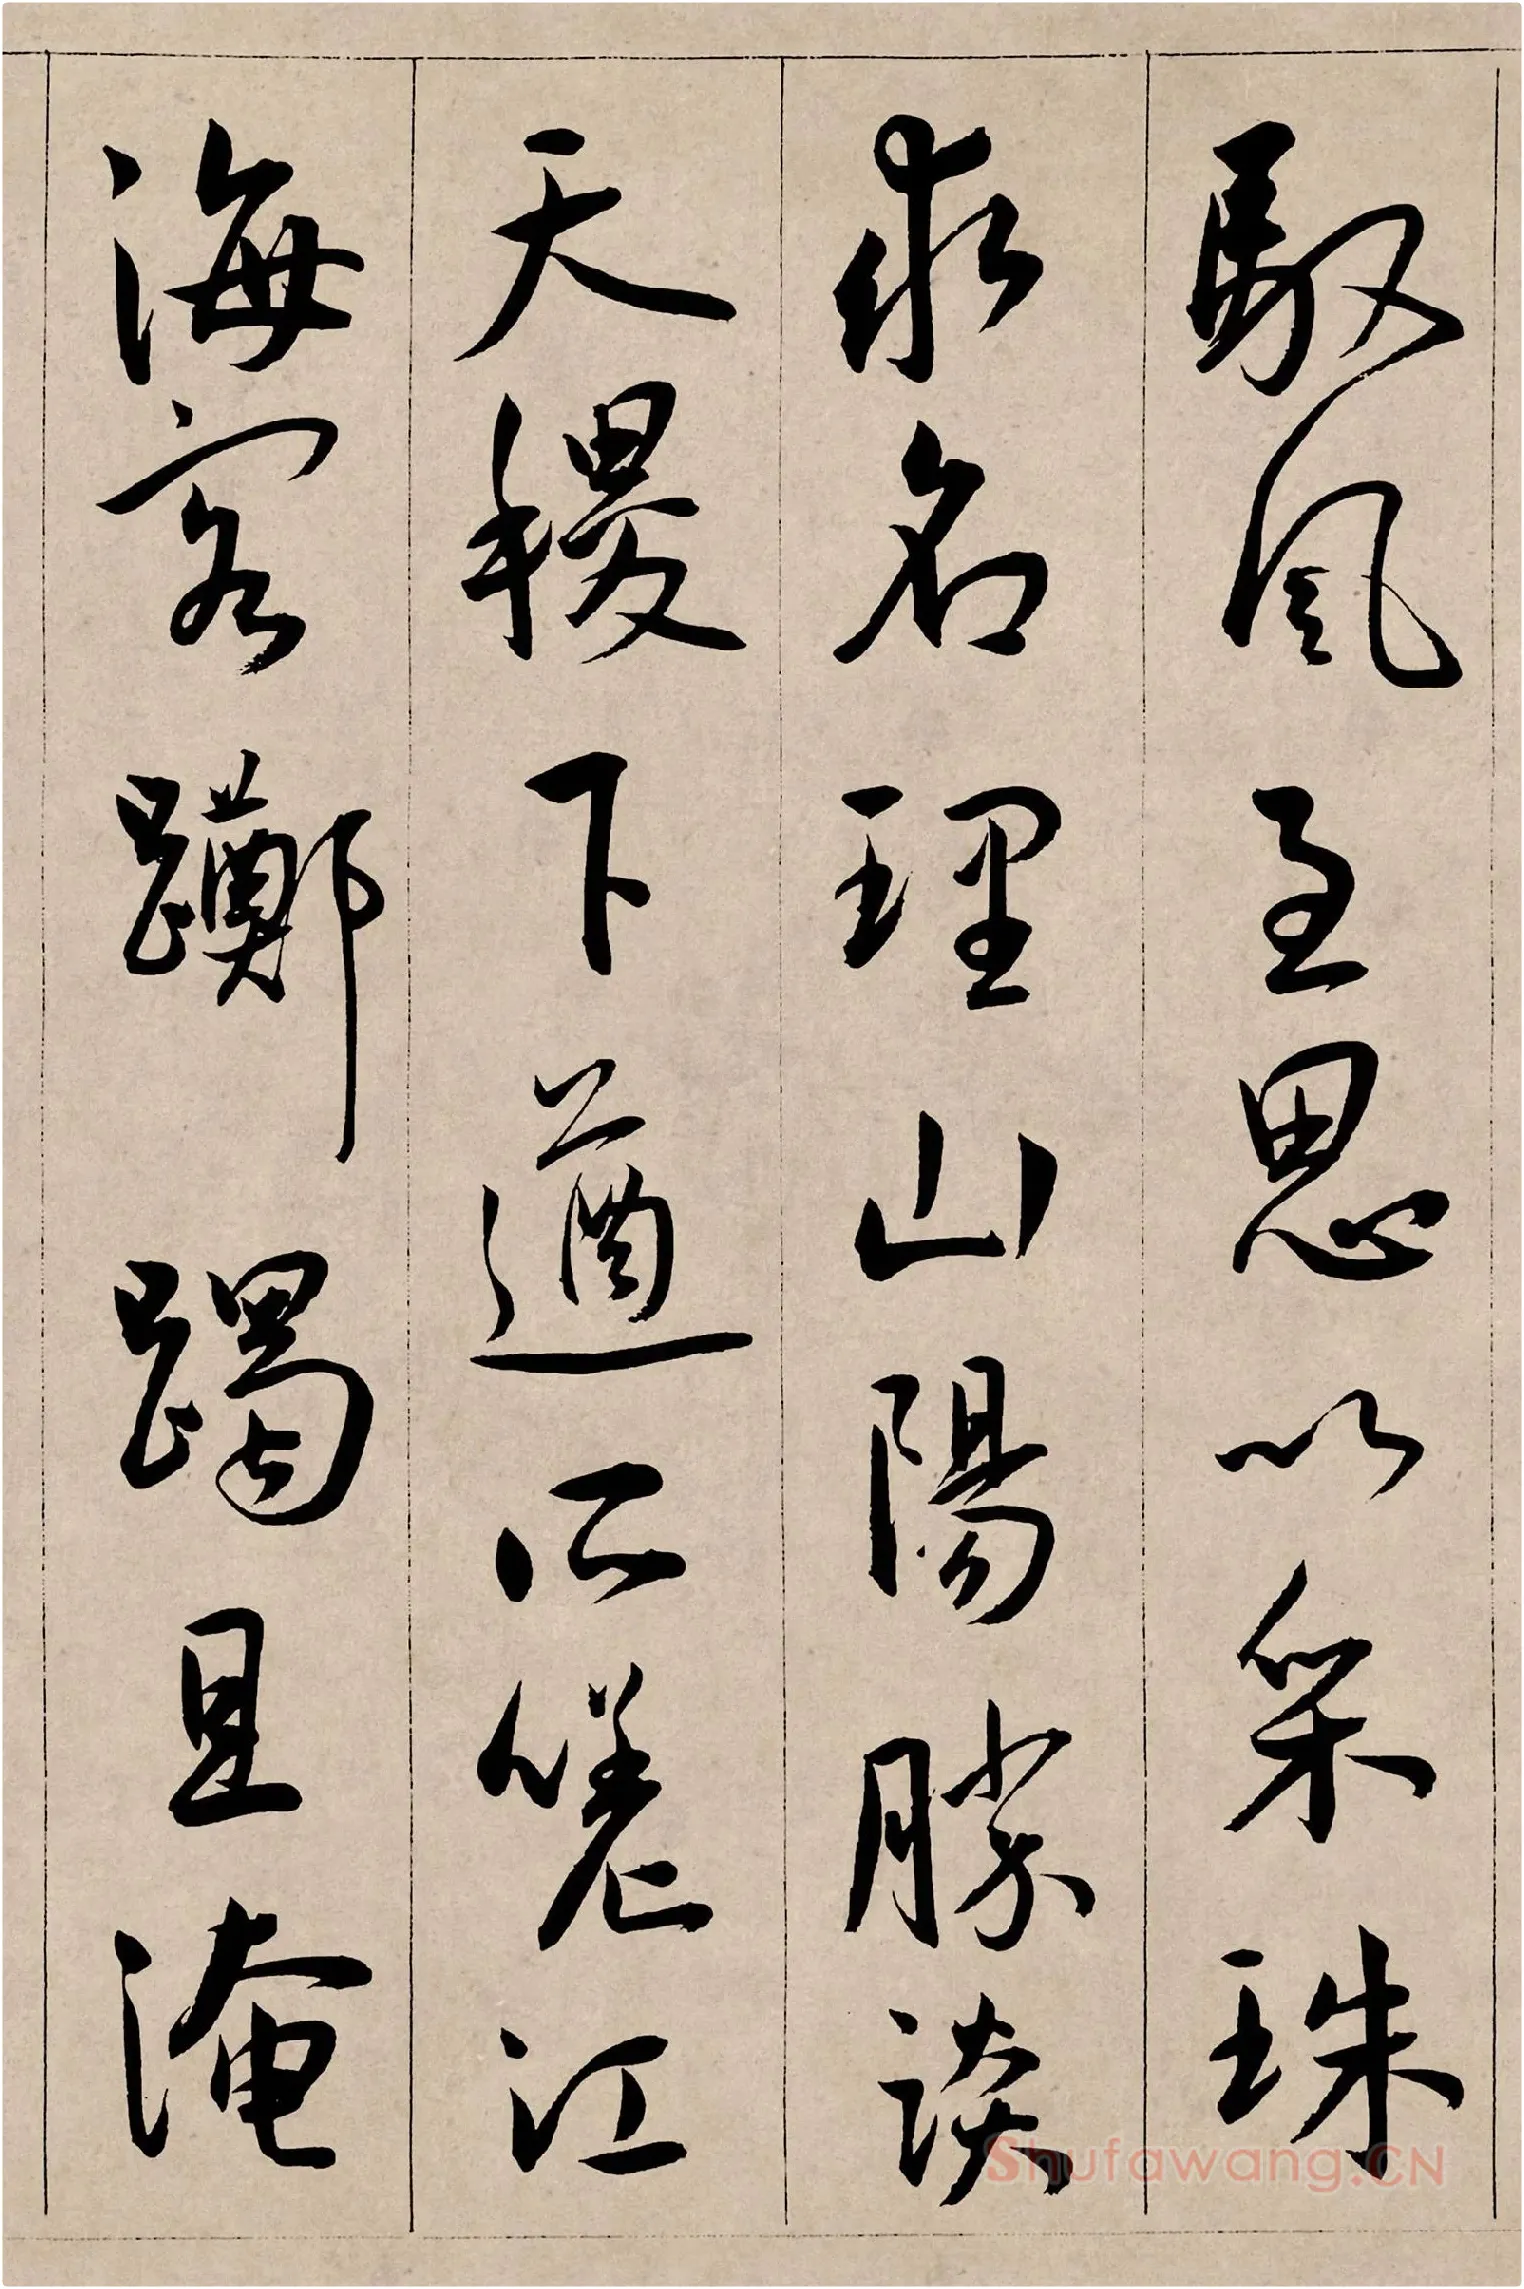 馭風至思以采珠
求名理山陽勝談
天稷下遒所嗟江
海客躑躅且淹
Shufawang.CN